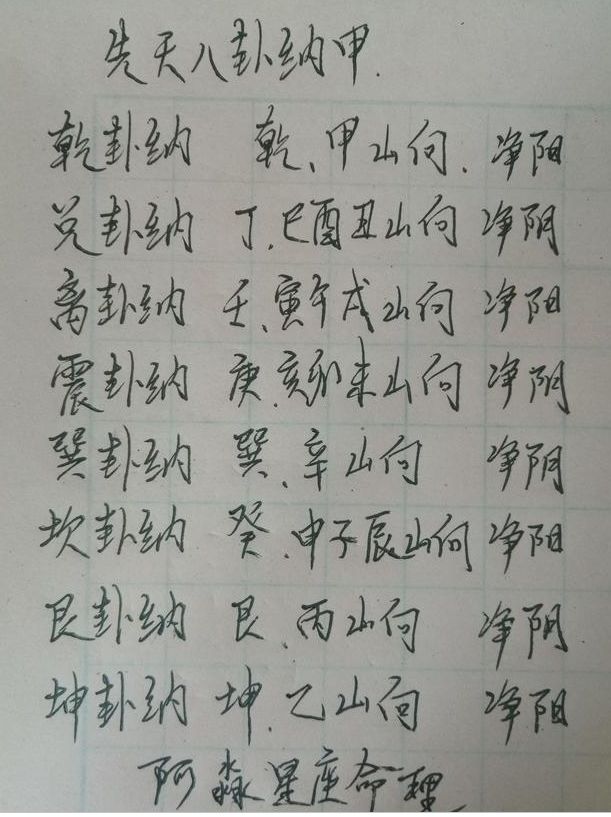 先天八卦纳甲.
乾卦纳 乾、甲山向、净阳
兑卦纳 丁、巳酉丑山向 净阴
离卦纳 壬、寅午戌山向 净阳
震卦纳 庚、亥卯未山向 净阴
巽卦纳 巽、辛山向 净阴
坎卦纳 癸、申子辰山向 净阳
艮卦纳 艮、丙山向 净阴
坤卦纳 坤、乙山向 净阳
阿淼星座命理